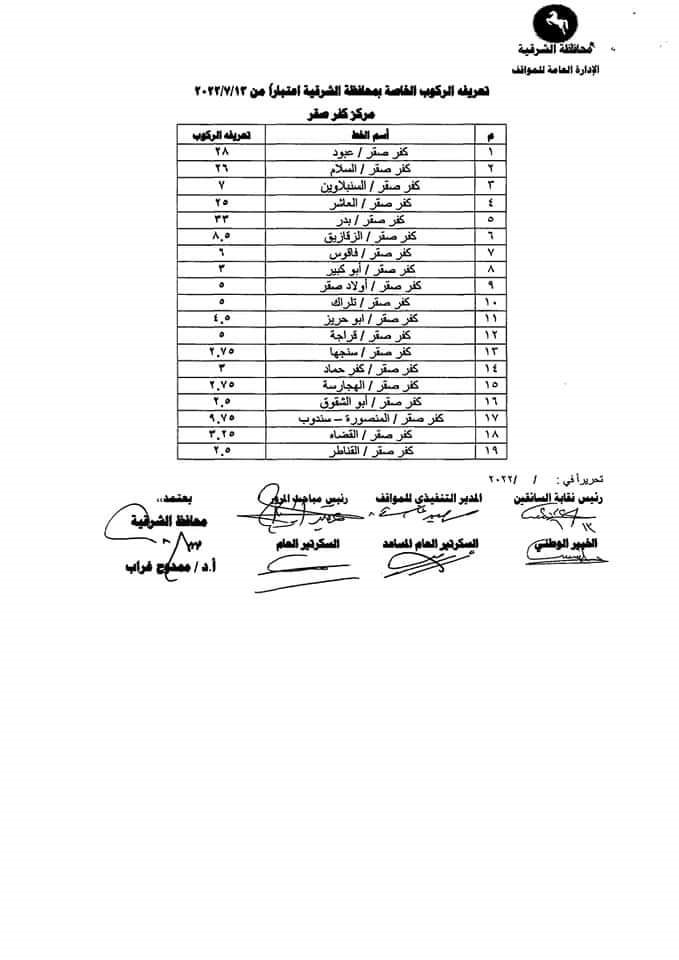 محافظة الشرقية
الإدارة العامة للمواقف
تعريفه الركوب الخاصة بمحافظة الشرقية اعتباراً من ٢٠٢٢/٧/١٣
مركز كفر صقر
م أسم الخط تعريفه الركوب
١ كفر صقر / عبود ٢٨
٢ كفر صقر / السلام ٢٦
٣ كفر صقر / السنبلاوين ٧
٤ كفر صقر / العاشر ٢٥
٥ كفر صقر / بدر ٣٣
٦ كفر صقر / الزقازيق ٨,٥
٧ كفر صقر / فاقوس ٦
٨ كفر صقر / أبو كبير ٣
٩ كفر صقر / أولاد صقر ٥
١٠ كفر صقر / تلراك ٥
١١ كفر صقر / ابو حريز ٤,٥
١٢ كفر صقر / قراجة ٥
١٣ كفر صقر / سنجها ٢,٧٥
١٤ كفر صقر / كفر حماد ٣
١٥ كفر صقر / الهجارسة ٢,٧٥
١٦ كفر صقر / أبو الشقوق ٢,٥
١٧ كفر صقر / المنصورة – سندوب ٩,٧٥
١٨ كفر صقر / القضاه ٣,٢٥
١٩ كفر صقر / القناطر ٢,٥
تحريراً في : / / ٢٠٢٢
رئيس نقابة السائقين المدير التنفيذي للمواقف رئيس مباحث المرور يعتمد،،
محافظ الشرقية
الخبير الوطني السكرتير العام المساعد السكرتير العام
أ.د / ممدوح غراب